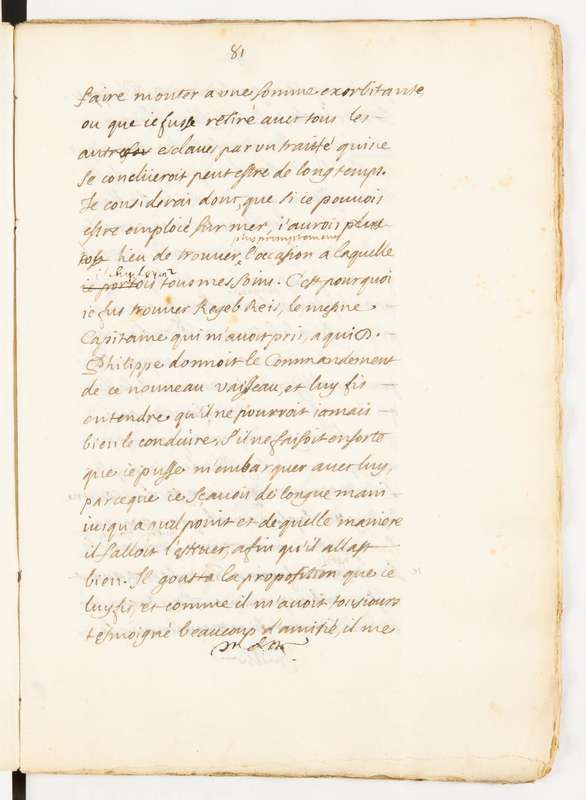 81
faire monter a vne somme exorbitante
ou que ie fusse retiré auec tous les
autres esclaues par vn traitté qui ne
se concluëroit peut estre de longtemps.
Je considerai donc, que si ie pouuois
estre emploié sur mer, i'aurois plus
plus promptement
tost lieu de trouuer l'occasion a laquelle
ie portois tous mes soins. C'est pourquoi
ie fus trouuer Regeb Reis, le mesme
Capitaine qui m'auoit pris, a qui D.
Philippe donnoit le Commandement
de ce nouueau vaisseau, et luy fis
entendre qu'il ne pourroit iamais
bien le conduire, s'il ne faisoit en sorte
que ie pusse m'embarquer auec luy,
parceque ie scauois de longue main
iusqu'a quel point et de quelle maniere
il falloit l'estiuer, afin qu'il allast
bien. Il gousta la proposition que ie
luy fis, et comme il m'auoit tousiours
tesmoigné beaucoup d'amitié, il me